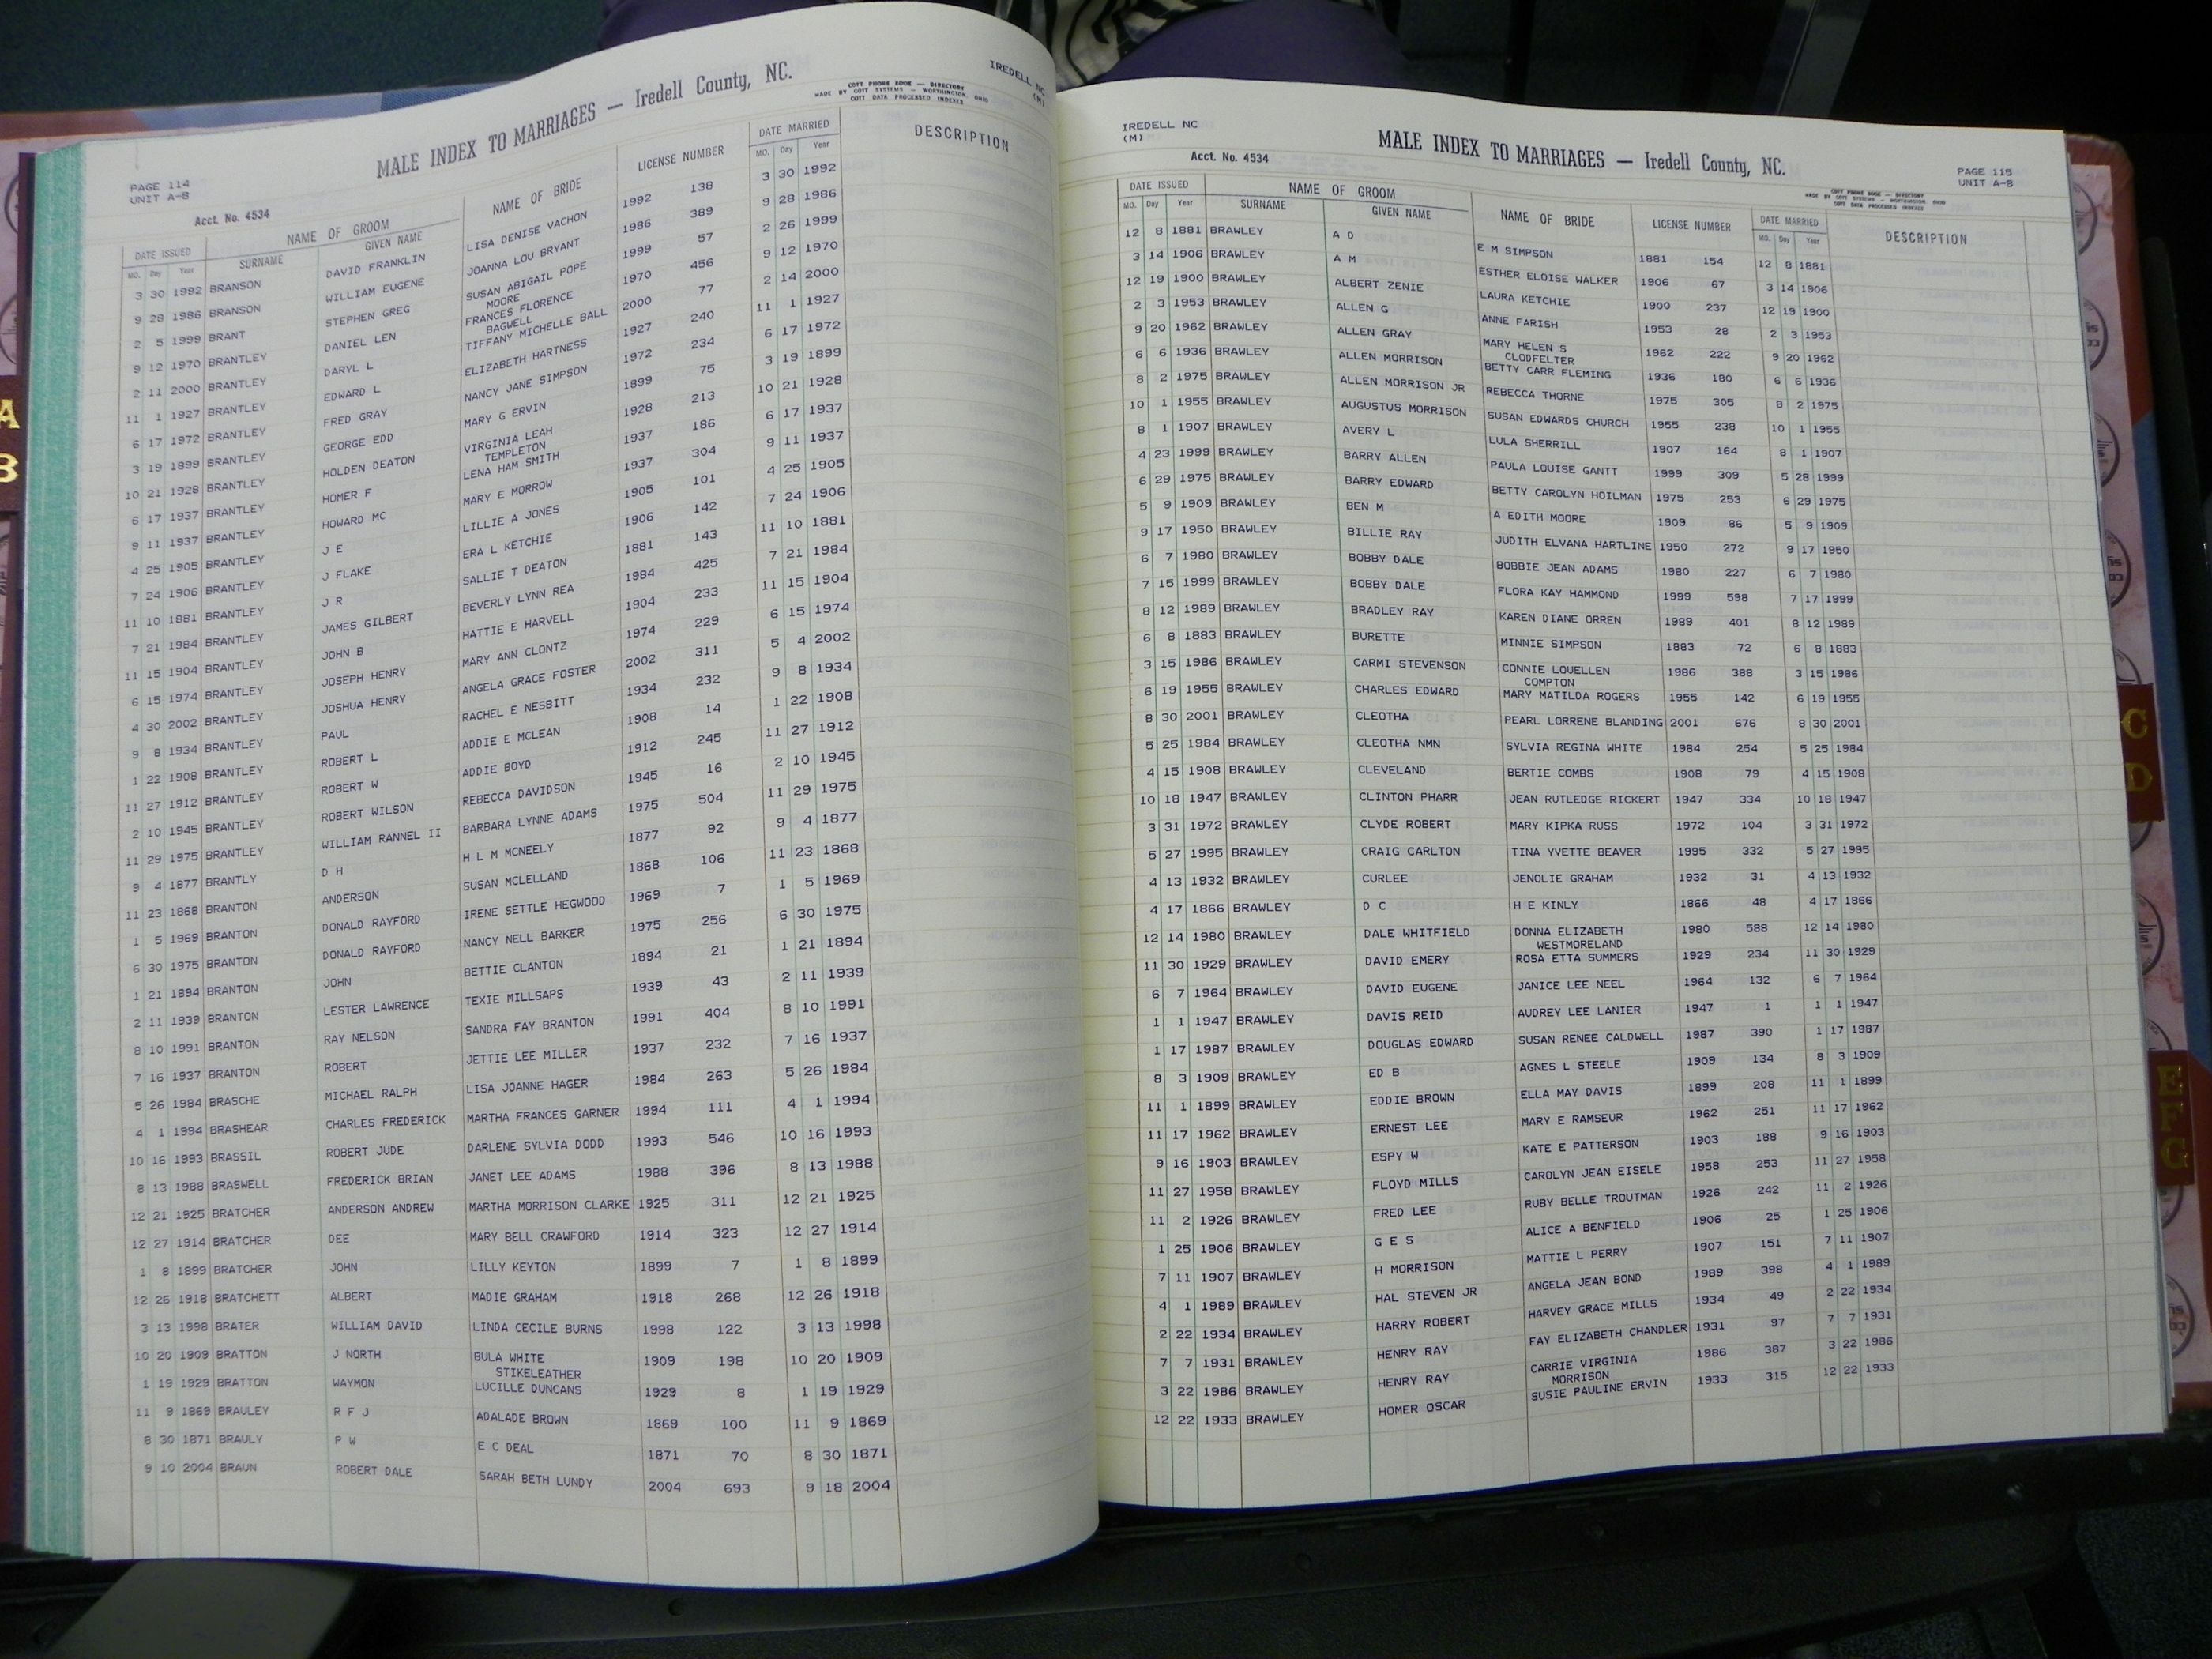 IREDELL NC
(M)
MALE INDEX TO MARRIAGES — Iredell County, NC.
COTT PHONE BOOK — DIRECTORY
MADE BY COTT SYSTEMS — WORTHINGTON, OHIO
COTT DATA PROCESSED INDEXES
PAGE 114
UNIT A-B
Acct. No. 4534
DATE ISSUED NAME OF GROOM NAME OF BRIDE LICENSE NUMBER DATE MARRIED DESCRIPTION
MO. Day Year SURNAME GIVEN NAME MO. Day Year
3 30 1992 BRANSON DAVID FRANKLIN LISA DENISE VACHON 1992 138 3 30 1992
9 28 1986 BRANSON WILLIAM EUGENE JOANNA LOU BRYANT 1986 389 9 28 1986
2 5 1999 BRANT STEPHEN GREG SUSAN ABIGAIL POPE 1999 57 2 26 1999
MOORE
9 12 1970 BRANTLEY DANIEL LEN FRANCES FLORENCE 1970 456 9 12 1970
BAGWELL
2 11 2000 BRANTLEY DARYL L TIFFANY MICHELLE BALL 2000 77 2 14 2000
11 1 1927 BRANTLEY EDWARD L ELIZABETH HARTNESS 1927 240 11 1 1927
6 17 1972 BRANTLEY FRED GRAY NANCY JANE SIMPSON 1972 234 6 17 1972
3 19 1899 BRANTLEY GEORGE EDD MARY G ERVIN 1899 75 3 19 1899
10 21 1928 BRANTLEY HOLDEN DEATON VIRGINIA LEAH 1928 213 10 21 1928
TEMPLETON
6 17 1937 BRANTLEY HOMER F LENA HAM SMITH 1937 186 6 17 1937
9 11 1937 BRANTLEY HOWARD MC MARY E MORROW 1937 304 9 11 1937
4 25 1905 BRANTLEY J E LILLIE A JONES 1905 101 4 25 1905
7 24 1906 BRANTLEY J FLAKE ERA L KETCHIE 1906 142 7 24 1906
11 10 1881 BRANTLEY J R SALLIE T DEATON 1881 143 11 10 1881
7 21 1984 BRANTLEY JAMES GILBERT BEVERLY LYNN REA 1984 425 7 21 1984
11 15 1904 BRANTLEY JOHN B HATTIE E HARVELL 1904 233 11 15 1904
6 15 1974 BRANTLEY JOSEPH HENRY MARY ANN CLONTZ 1974 229 6 15 1974
4 30 2002 BRANTLEY JOSHUA HENRY ANGELA GRACE FOSTER 2002 311 5 4 2002
9 8 1934 BRANTLEY PAUL RACHEL E NESBITT 1934 232 9 8 1934
1 22 1908 BRANTLEY ROBERT L ADDIE E MCLEAN 1908 14 1 22 1908
11 27 1912 BRANTLEY ROBERT W ADDIE BOYD 1912 245 11 27 1912
2 10 1945 BRANTLEY ROBERT WILSON REBECCA DAVIDSON 1945 16 2 10 1945
11 29 1975 BRANTLEY WILLIAM RANNEL II BARBARA LYNNE ADAMS 1975 504 11 29 1975
9 4 1877 BRANTLY D H H L M MCNEELY 1877 92 9 4 1877
11 23 1868 BRANTON ANDERSON SUSAN MCLELLAND 1868 106 11 23 1868
1 5 1969 BRANTON DONALD RAYFORD IRENE SETTLE HEGWOOD 1969 7 1 5 1969
6 30 1975 BRANTON DONALD RAYFORD NANCY NELL BARKER 1975 256 6 30 1975
1 21 1894 BRANTON JOHN BETTIE CLANTON 1894 21 1 21 1894
2 11 1939 BRANTON LESTER LAWRENCE TEXIE MILLSAPS 1939 43 2 11 1939
8 10 1991 BRANTON RAY NELSON SANDRA FAY BRANTON 1991 404 8 10 1991
7 16 1937 BRANTON ROBERT JETTIE LEE MILLER 1937 232 7 16 1937
5 26 1984 BRASCHE MICHAEL RALPH LISA JOANNE HAGER 1984 263 5 26 1984
4 1 1994 BRASHEAR CHARLES FREDERICK MARTHA FRANCES GARNER 1994 111 4 1 1994
10 16 1993 BRASSIL ROBERT JUDE DARLENE SYLVIA DODD 1993 546 10 16 1993
8 13 1988 BRASWELL FREDERICK BRIAN JANET LEE ADAMS 1988 396 8 13 1988
12 21 1925 BRATCHER ANDERSON ANDREW MARTHA MORRISON CLARKE 1925 311 12 21 1925
12 27 1914 BRATCHER DEE MARY BELL CRAWFORD 1914 323 12 27 1914
1 8 1899 BRATCHER JOHN LILLY KEYTON 1899 7 1 8 1899
12 26 1918 BRATCHETT ALBERT MADIE GRAHAM 1918 268 12 26 1918
3 13 1998 BRATER WILLIAM DAVID LINDA CECILE BURNS 1998 122 3 13 1998
10 20 1909 BRATTON J NORTH BULA WHITE 1909 198 10 20 1909
STIKELEATHER
1 19 1929 BRATTON WAYMON LUCILLE DUNCANS 1929 8 1 19 1929
11 9 1869 BRAULEY R F J ADALADE BROWN 1869 100 11 9 1869
8 30 1871 BRAULY P W E C DEAL 1871 70 8 30 1871
9 10 2004 BRAUN ROBERT DALE SARAH BETH LUNDY 2004 693 9 18 2004
IREDELL NC
(M)
Acct. No. 4534
MALE INDEX TO MARRIAGES — Iredell County, NC.
PAGE 115
UNIT A-B
COTT PHONE BOOK — DIRECTORY
MADE BY COTT SYSTEMS — WORTHINGTON, OHIO
COTT DATA PROCESSED INDEXES
DATE ISSUED NAME OF GROOM NAME OF BRIDE LICENSE NUMBER DATE MARRIED DESCRIPTION
MO. Day Year SURNAME GIVEN NAME MO. Day Year
12 8 1881 BRAWLEY A D E M SIMPSON 1881 154 12 8 1881
3 14 1906 BRAWLEY A M ESTHER ELOISE WALKER 1906 67 3 14 1906
12 19 1900 BRAWLEY ALBERT ZENIE LAURA KETCHIE 1900 237 12 19 1900
2 3 1953 BRAWLEY ALLEN G ANNE FARISH 1953 28 2 3 1953
9 20 1962 BRAWLEY ALLEN GRAY MARY HELEN S 1962 222 9 20 1962
CLODFELTER
6 6 1936 BRAWLEY ALLEN MORRISON BETTY CARR FLEMING 1936 180 6 6 1936
8 2 1975 BRAWLEY ALLEN MORRISON JR REBECCA THORNE 1975 305 8 2 1975
10 1 1955 BRAWLEY AUGUSTUS MORRISON SUSAN EDWARDS CHURCH 1955 238 10 1 1955
8 1 1907 BRAWLEY AVERY L LULA SHERRILL 1907 164 8 1 1907
4 23 1999 BRAWLEY BARRY ALLEN PAULA LOUISE GANTT 1999 309 5 28 1999
6 29 1975 BRAWLEY BARRY EDWARD BETTY CAROLYN HOILMAN 1975 253 6 29 1975
5 9 1909 BRAWLEY BEN M A EDITH MOORE 1909 86 5 9 1909
9 17 1950 BRAWLEY BILLIE RAY JUDITH ELVANA HARTLINE 1950 272 9 17 1950
6 7 1980 BRAWLEY BOBBY DALE BOBBIE JEAN ADAMS 1980 227 6 7 1980
7 15 1999 BRAWLEY BOBBY DALE FLORA KAY HAMMOND 1999 598 7 17 1999
8 12 1989 BRAWLEY BRADLEY RAY KAREN DIANE ORREN 1989 401 8 12 1989
6 8 1883 BRAWLEY BURETTE MINNIE SIMPSON 1883 72 6 8 1883
3 15 1986 BRAWLEY CARMI STEVENSON CONNIE LOUELLEN 1986 388 3 15 1986
COMPTON
6 19 1955 BRAWLEY CHARLES EDWARD MARY MATILDA ROGERS 1955 142 6 19 1955
8 30 2001 BRAWLEY CLEOTHA PEARL LORRENE BLANDING 2001 676 8 30 2001
5 25 1984 BRAWLEY CLEOTHA NMN SYLVIA REGINA WHITE 1984 254 5 25 1984
4 15 1908 BRAWLEY CLEVELAND BERTIE COMBS 1908 79 4 15 1908
10 18 1947 BRAWLEY CLINTON PHARR JEAN RUTLEDGE RICKERT 1947 334 10 18 1947
3 31 1972 BRAWLEY CLYDE ROBERT MARY KIPKA RUSS 1972 104 3 31 1972
5 27 1995 BRAWLEY CRAIG CARLTON TINA YVETTE BEAVER 1995 332 5 27 1995
4 13 1932 BRAWLEY CURLEE JENOLIE GRAHAM 1932 31 4 13 1932
4 17 1866 BRAWLEY D C H E KINLY 1866 48 4 17 1866
12 14 1980 BRAWLEY DALE WHITFIELD DONNA ELIZABETH 1980 588 12 14 1980
WESTMORELAND
11 30 1929 BRAWLEY DAVID EMERY ROSA ETTA SUMMERS 1929 234 11 30 1929
6 7 1964 BRAWLEY DAVID EUGENE JANICE LEE NEEL 1964 132 6 7 1964
1 1 1947 BRAWLEY DAVIS REID AUDREY LEE LANIER 1947 1 1 1 1947
1 17 1987 BRAWLEY DOUGLAS EDWARD SUSAN RENEE CALDWELL 1987 390 1 17 1987
8 3 1909 BRAWLEY ED B AGNES L STEELE 1909 134 8 3 1909
11 1 1899 BRAWLEY EDDIE BROWN ELLA MAY DAVIS 1899 208 11 1 1899
11 17 1962 BRAWLEY ERNEST LEE MARY E RAMSEUR 1962 251 11 17 1962
9 16 1903 BRAWLEY ESPY W KATE E PATTERSON 1903 188 9 16 1903
11 27 1958 BRAWLEY FLOYD MILLS CAROLYN JEAN EISELE 1958 253 11 27 1958
11 2 1926 BRAWLEY FRED LEE RUBY BELLE TROUTMAN 1926 242 11 2 1926
1 25 1906 BRAWLEY G E S ALICE A BENFIELD 1906 25 1 25 1906
7 11 1907 BRAWLEY H MORRISON MATTIE L PERRY 1907 151 7 11 1907
4 1 1989 BRAWLEY HAL STEVEN JR ANGELA JEAN BOND 1989 398 4 1 1989
2 22 1934 BRAWLEY HARRY ROBERT HARVEY GRACE MILLS 1934 49 2 22 1934
7 7 1931 BRAWLEY HENRY RAY FAY ELIZABETH CHANDLER 1931 97 7 7 1931
3 22 1986 BRAWLEY HENRY RAY CARRIE VIRGINIA 1986 387 3 22 1986
MORRISON
12 22 1933 BRAWLEY HOMER OSCAR SUSIE PAULINE ERVIN 1933 315 12 22 1933
A
B
C
D
E
F
G